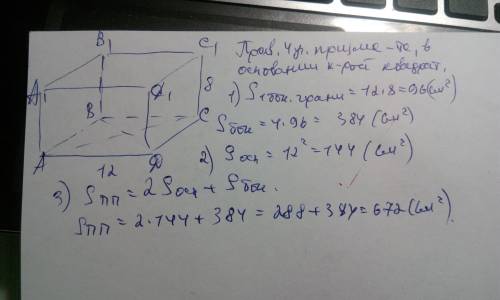 B₁
C₁
A₁
D₁
8
B
C
A
12
D
Прав. 4 уг. призма - та, в
основании к-рой квадрат.
1) S1 бок. грани = 12·8 = 96 (см²)
Sбок = 4·96 = 384 (см²)
2) Sосн = 12² = 144 (см²)
3) Sпп = 2Sосн + Sбок.
Sпп = 2·144 + 384 = 288 + 384 = 672 (см²)